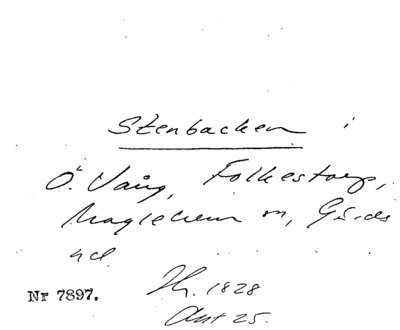 Stenbacken i
Ö. Vång, Folkestorp,
Maglehem sn, Gärds
hd
Nr 7897.
Th. 1828
Akt 25.